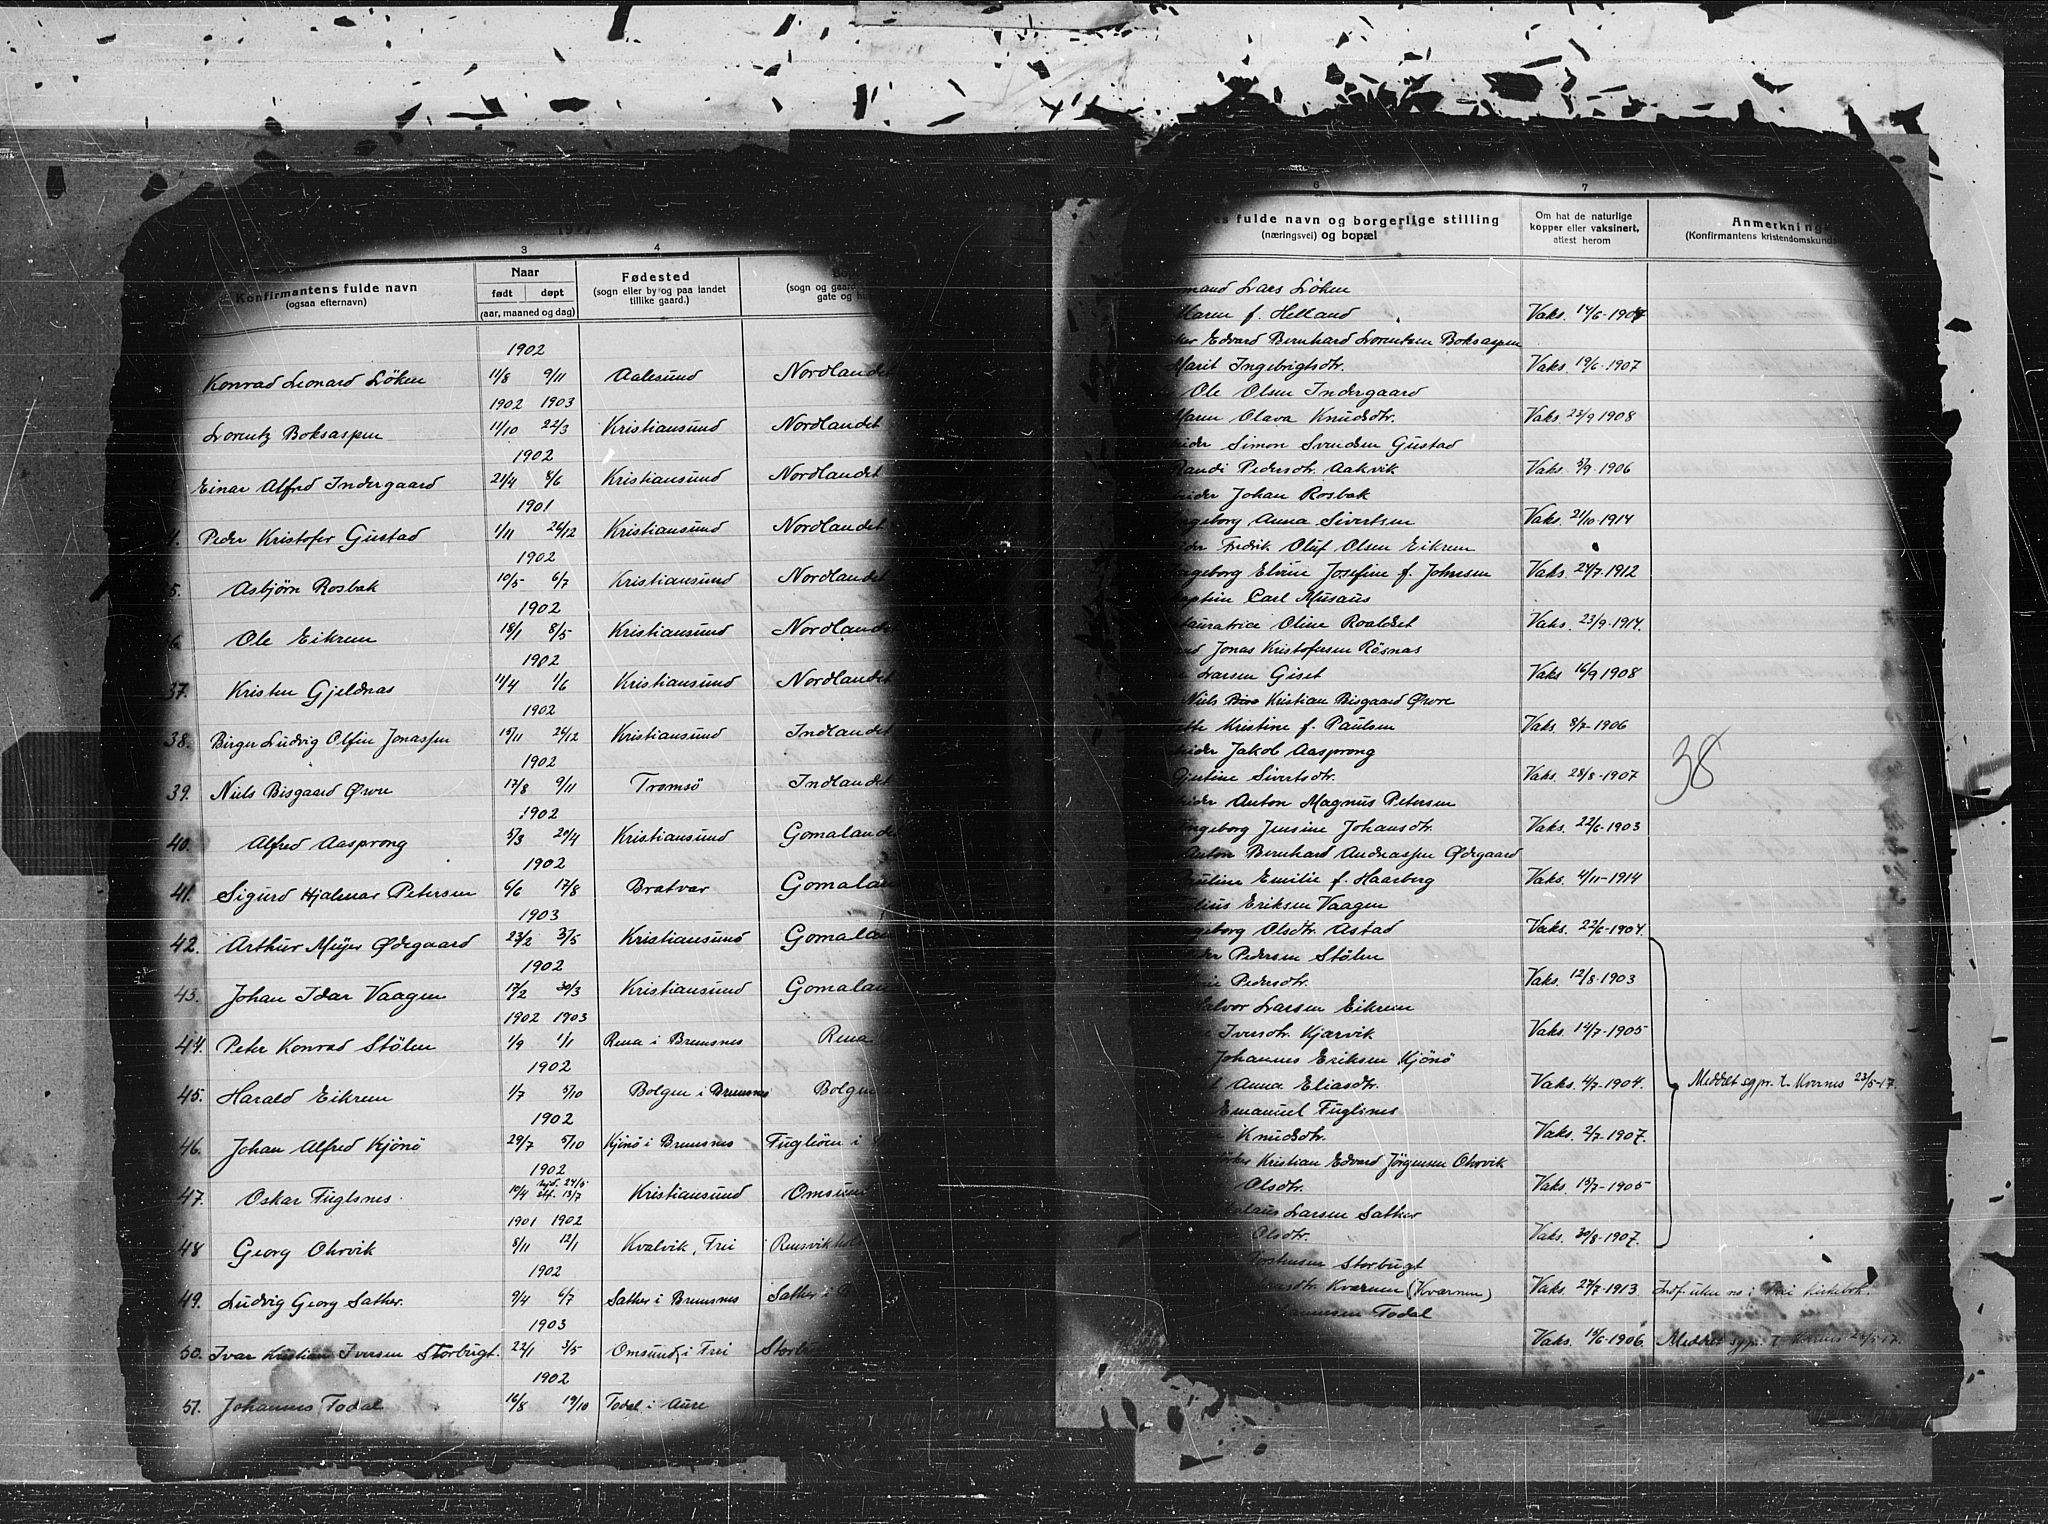 3 4
Konfirmantens fulde navn
(ogsaa efternavn)
Naar
født døpt
(aar, maaned og dag)
Fødested
(sogn eller by og paa landet
tillike gaard.)
1902
Konrad Leonard Löken 11/8 9/11 Aalesund Nordlandet
1902 1903
Lorentz Boksaspen 11/10 22/3 Kristiansund Nordlandet
1902
Einar Alfred Indergaard 21/4 8/6 Kristiansund Nordlandet
1901
Peder Kristofer Gustad 1/11 26/12 Kristiansund Nordlandet
1902
Asbjörn Rosbak 10/5 6/7 Kristiansund Nordlandet
1902
Ole Eikrem 18/1 8/5 Kristiansund Nordlandet
1902
37. Kristen Gjeldnas 11/4 1/6 Kristiansund Nordlandet
1902
38. Birger Ludvig Olfin Jonassen 15/11 26/12 Kristiansund Indlandet
1902
39. Niels Bisgaard Øwre 17/8 9/11 Tromsö Indlandet
1902
40. Alfred Aasprong 5/3 20/4 Kristiansund Gomalandet
1902
41. Sigurd Hjalmar Petersen 6/6 17/8 Bratvar Gomalan
1903
42. Arthur Meyer Ødegaard 23/2 3/5 Kristiansund Gomalan
1902
43. Johan Idar Vaagen 17/2 30/3 Kristiansund Gomalan
1902 1903
44. Peter Konrad Stölen 1/9 1/1 Rena i Bremsnes Rena
1902
45. Harald Eikrem 1/7 5/10 Bolgen i Bremsnes Bolgen
1902
46. Johan Alfred Kjönö 29/7 5/10 Kjönö i Bremsnes Fugløen i
1902
47. Oskar Fuglsnes. 10/4 hjd. 24/5 stf. 13/7 Kristiansund Omsund
1901 1902
48 Georg Ohrvik 8/11 12/1 Kvalvik, Frei Rensvik
1902
49. Ludvig Georg Sather. 9/4 6/7 Sather i Bremsnes Sather i
1903
50. Ivar Kristian Iversen Storbugt. 22/1 3/5 Omsund, i Frei
1902
51. Johannes Todal 16/8 19/10 Todal i Aure
6 7
fulde navn og borgerlige stilling
(næringsvei) og bopæl
Om hat de naturlige
kopper eller vaksinert,
attest herom
Anmerkning
(Konfirmantens kristendomskunds
Lars Löken
Maren f. Helland Vaks. 14/6-1907
Edvard Bernhard Lorentsen Boksaspen
Marit Ingebrigtsdtr. Vaks. 19/6-1907
Ole Olsen Indergaard
Maren Olava Knudsdtr. Vaks. 23/9 1908
Simon Svendsen Gustad
Randi Pedersdtr. Aakvik Vaks. 5/9-1906
Johan Rosbak
Ingeborg Anna Sivertsen Vaks. 21/10-1914
Fredrik Oluf Olsen Eikrem
Ingeborg Elvine Josefine f. Johnsen Vaks. 24/7-1912
Carl Musaus
Oline Roaldset Vaks. 23/9-1914.
Jonas Kristofersen Rösnas
Larsen Giset Vaks 16/9 1908
Niels Kristian Bisgaard Øwre
Kristine f. Paulsen Vaks. 8/7-1906
Jakob Aasprong
Sivertsdtr. Vaks. 28/8-1907
38
Anton Magnus Petersen
Ingeborg Jensine Johansdtr. Vaks. 22/6-1903
Anton Bernhard Andreassen Ødegaard
Pauline Emilie f. Haarberg Vaks. 4/11-1914
Eriksen Vaagen
Ingeborg Olsdtr. Astad Vaks. 22/6-1904
Pedersen Stölen
Pedersdtr. Vaks. 12/8-1903
Halvor Larsen Eikrem
Iversdtr. Kjarvik Vaks. 14/7-1905
Johannes Eriksen Kjönö
Anna Eliasdtr. Vaks. 4/7-1904. Meddelt sgpr. t. Kvernes 23/5-17.
Emanuel Fuglsnes
Knudsdtr. Vaks. 2/7-1907.
Kristian Edvard Jørgensen Ohrvik
Olsdtr. Vaks. 15/7-1905
Larsen Sather
Olsdtr. Vaks. 30/8-1907.
Storbugt
Kvarnen (Kvarnen) Vaks. 27/7-1913. Indf. uten no i Frei kirkebok.
Todal
Vaks. 15/6-1906. Meddelt sgpr. t. Kvernes 23/5-17.